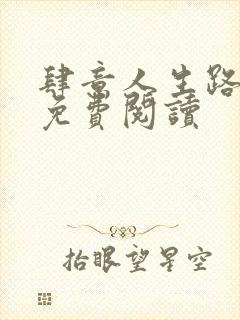 肆意人生路
免費閱讀
抬眼望星空